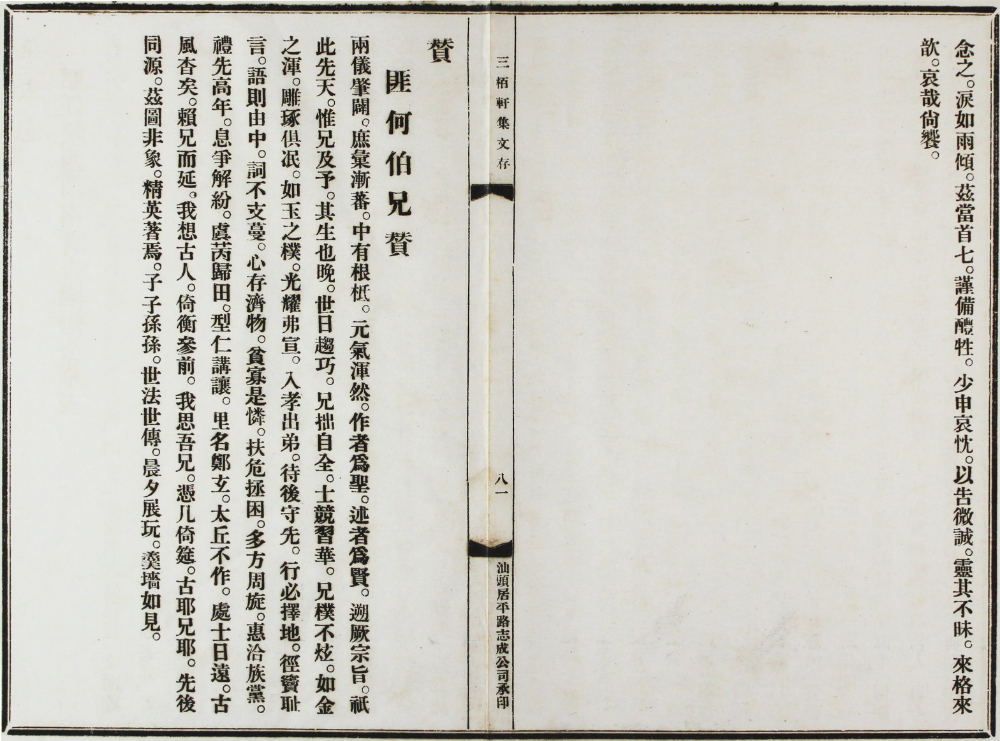 念之。淚如雨傾。茲當首七。謹備醴牲。少申哀忱。以告微誠。靈其不昧。來格來
歆。哀哉尙饗。
三栢軒集文存
八一
汕頭居平路志成公司承印
贊
匪何伯兄贊
兩儀肇闢。庶彙漸蕃。中有根柢。元氣渾然。作者爲聖。述者爲賢。遡厥宗旨。祇
此先天。惟兄及予。其生也晚。世日趨巧。兄拙自全。士競習華。兄樸不炫。如金
之渾。雕琢俱泯。如玉之樸。光耀弗宣。入孝出弟。待後守先。行必擇地。徑竇耻
言。語則由中。詞不支蔓。心存濟物。貧寡是憐。扶危拯困。多方周旋。惠洽族黨。
禮先高年。息爭解紛。虞芮歸田。型仁講讓。里名鄭玄。太丘不作。處士日遠。古
風杳矣。賴兄而延。我想古人。倚衡參前。我思吾兄。憑几倚筵。古耶兄耶。先後
同源。茲圖非象。精英著焉。子子孫孫。世法世傳。晨夕展玩。羹墻如見。